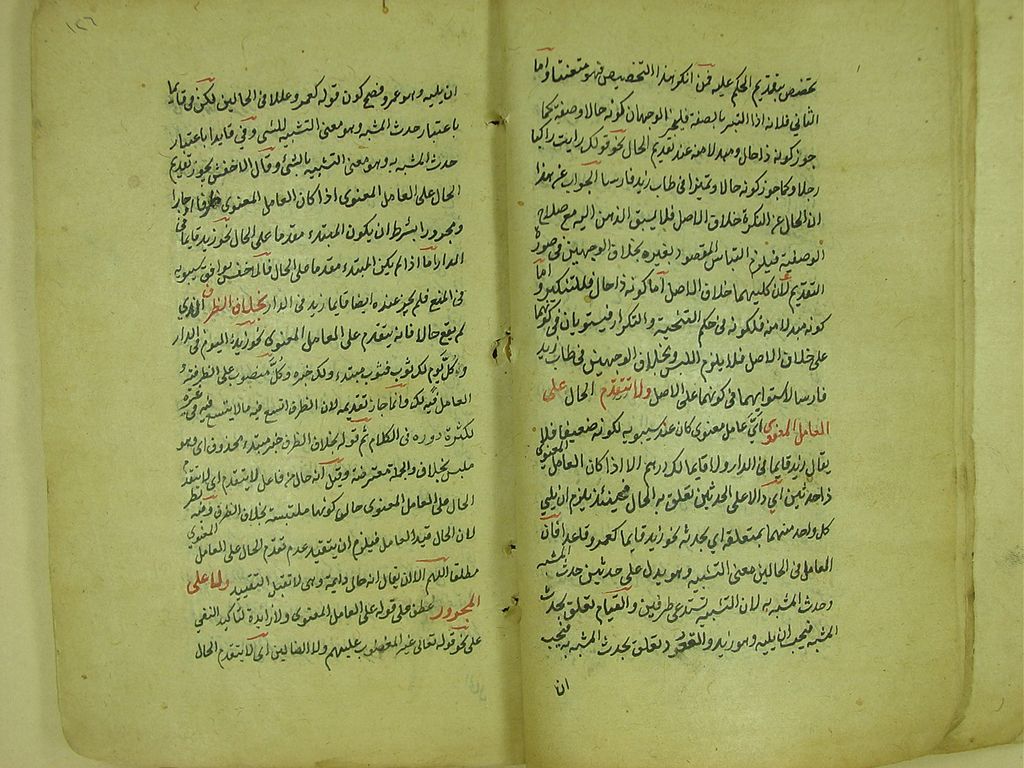 يختص بتقديم الحكم عليه فمن انكر هذا التخصيص فهو متعنت واما
الثاني فلانه اذا التبس بالصفة فليجز الوجهان كونه حالا وصفة كما
جوز كونه ذا حال ومبدلا منه عند تقديم الحال نحو قولك رايت راكبا
رجلا وكما جوز كونه حالا وتميزا في طاب زيد فارسا الجواب عن هذا
ان الحال عن النكرة خلاف الاصل فلا يسبق الذهن اليه مع صلاح
الوصفية فيلزم التباس المقصود بغيره بخلاف الوجهين في صورة
التقديم لان كليهما خلاف الاصل اما كونه ذا حال فللتنكير واما
كونه مبدلا منه فلكونه في حكم التنحية والتكرار فيستويان في كونهما
على خلاف الاصل فلا يلزم اللبس وبخلاف الوجهين في طاب زيد
فارسا لاستوائهما في كونهما على الاصل ولا تتقدم الحال على
العامل المعنوي اي عامل معنوي كان عند سيبويه لكونه ضعيفا فلا
يقال زيد قايما في الدار ولا قايما لك درهم الا اذا كان العامل المعنوي
ذا حدثين اي دالا على الحدثين تعلق به الحال فحينئذ يلزم ان يلي
كل واحد منهما بمتعلقه اي بحدثه نحو زيد قايما كعمرو قاعدا فان
العامل في الحالين معنى التشبيه وهو يدل على حدثين حدث المشبه
وحدث المشبه به لان التشبيه يستدعي طرفين والقيام تعلق بحدث
المشبه فيجب ان يليه وهو زيد والقعود تعلق بحدث المشبه به فيجب
ان
١٢٦
ان يليه وهو عمرو فصح كون قوله كعمرو عاملا في الحالين لكن في قايما
باعتبار حدث المشبه وهو معنى التشبيه للشئ وفي قاعدا باعتبار
حدث المشبه به وهو معنى التشبيه بالشئ وقال الاخفش يجوز تقديم
الحال على العامل المعنوي اذا كان العامل المعنوي ظرفا او جارا
ومجرورا بشرط ان يكون المبتدء مقدما على الحال نحو زيد قايما في
الدار اما اذا لم يكن المبتدء مقدما على الحال فالاخفش يوافق سيبويه
في المنع فلم يجز عنده ايضا قايما زيد في الدار بخلاف الظرف الذي
لم يقع حالا فانه يتقدم على العامل المعنوي نحو زيد اليوم في الدار
وكل يوم لك ثوب فثوب مبتدء ولك خبره وكل منصوب على الظرفية و
العامل فيه لك وانما جاز تقديمه لان الظرف اتسع فيه ما لا يتسع في غيره
لكثرة دوره في الكلام ثم قوله بخلاف الظرف خبر مبتدء محذوف اي وهو
ملتبس بخلاف والجملة معترضة وقيل انه حال من فاعل لا يتقدم اي لا يتقدم
الحال على العامل المعنوي حال كونها ملتبسة بخلاف الظرف وفيه نظر
لان الحال قيد العامل فيلزم ان يتقيد عدم تقدم الحال على العامل المعنوي
مطلقا اللهم الا ان يقال انه حال دايمة وهي لا تقبل التقييد ولا على
المجرور عطف على قوله على العامل المعنوي ولا زايدة لتاكيد النفي
على نحو قوله تعالى غير المغضوب عليهم ولا الضالين اي لا يتقدم الحال